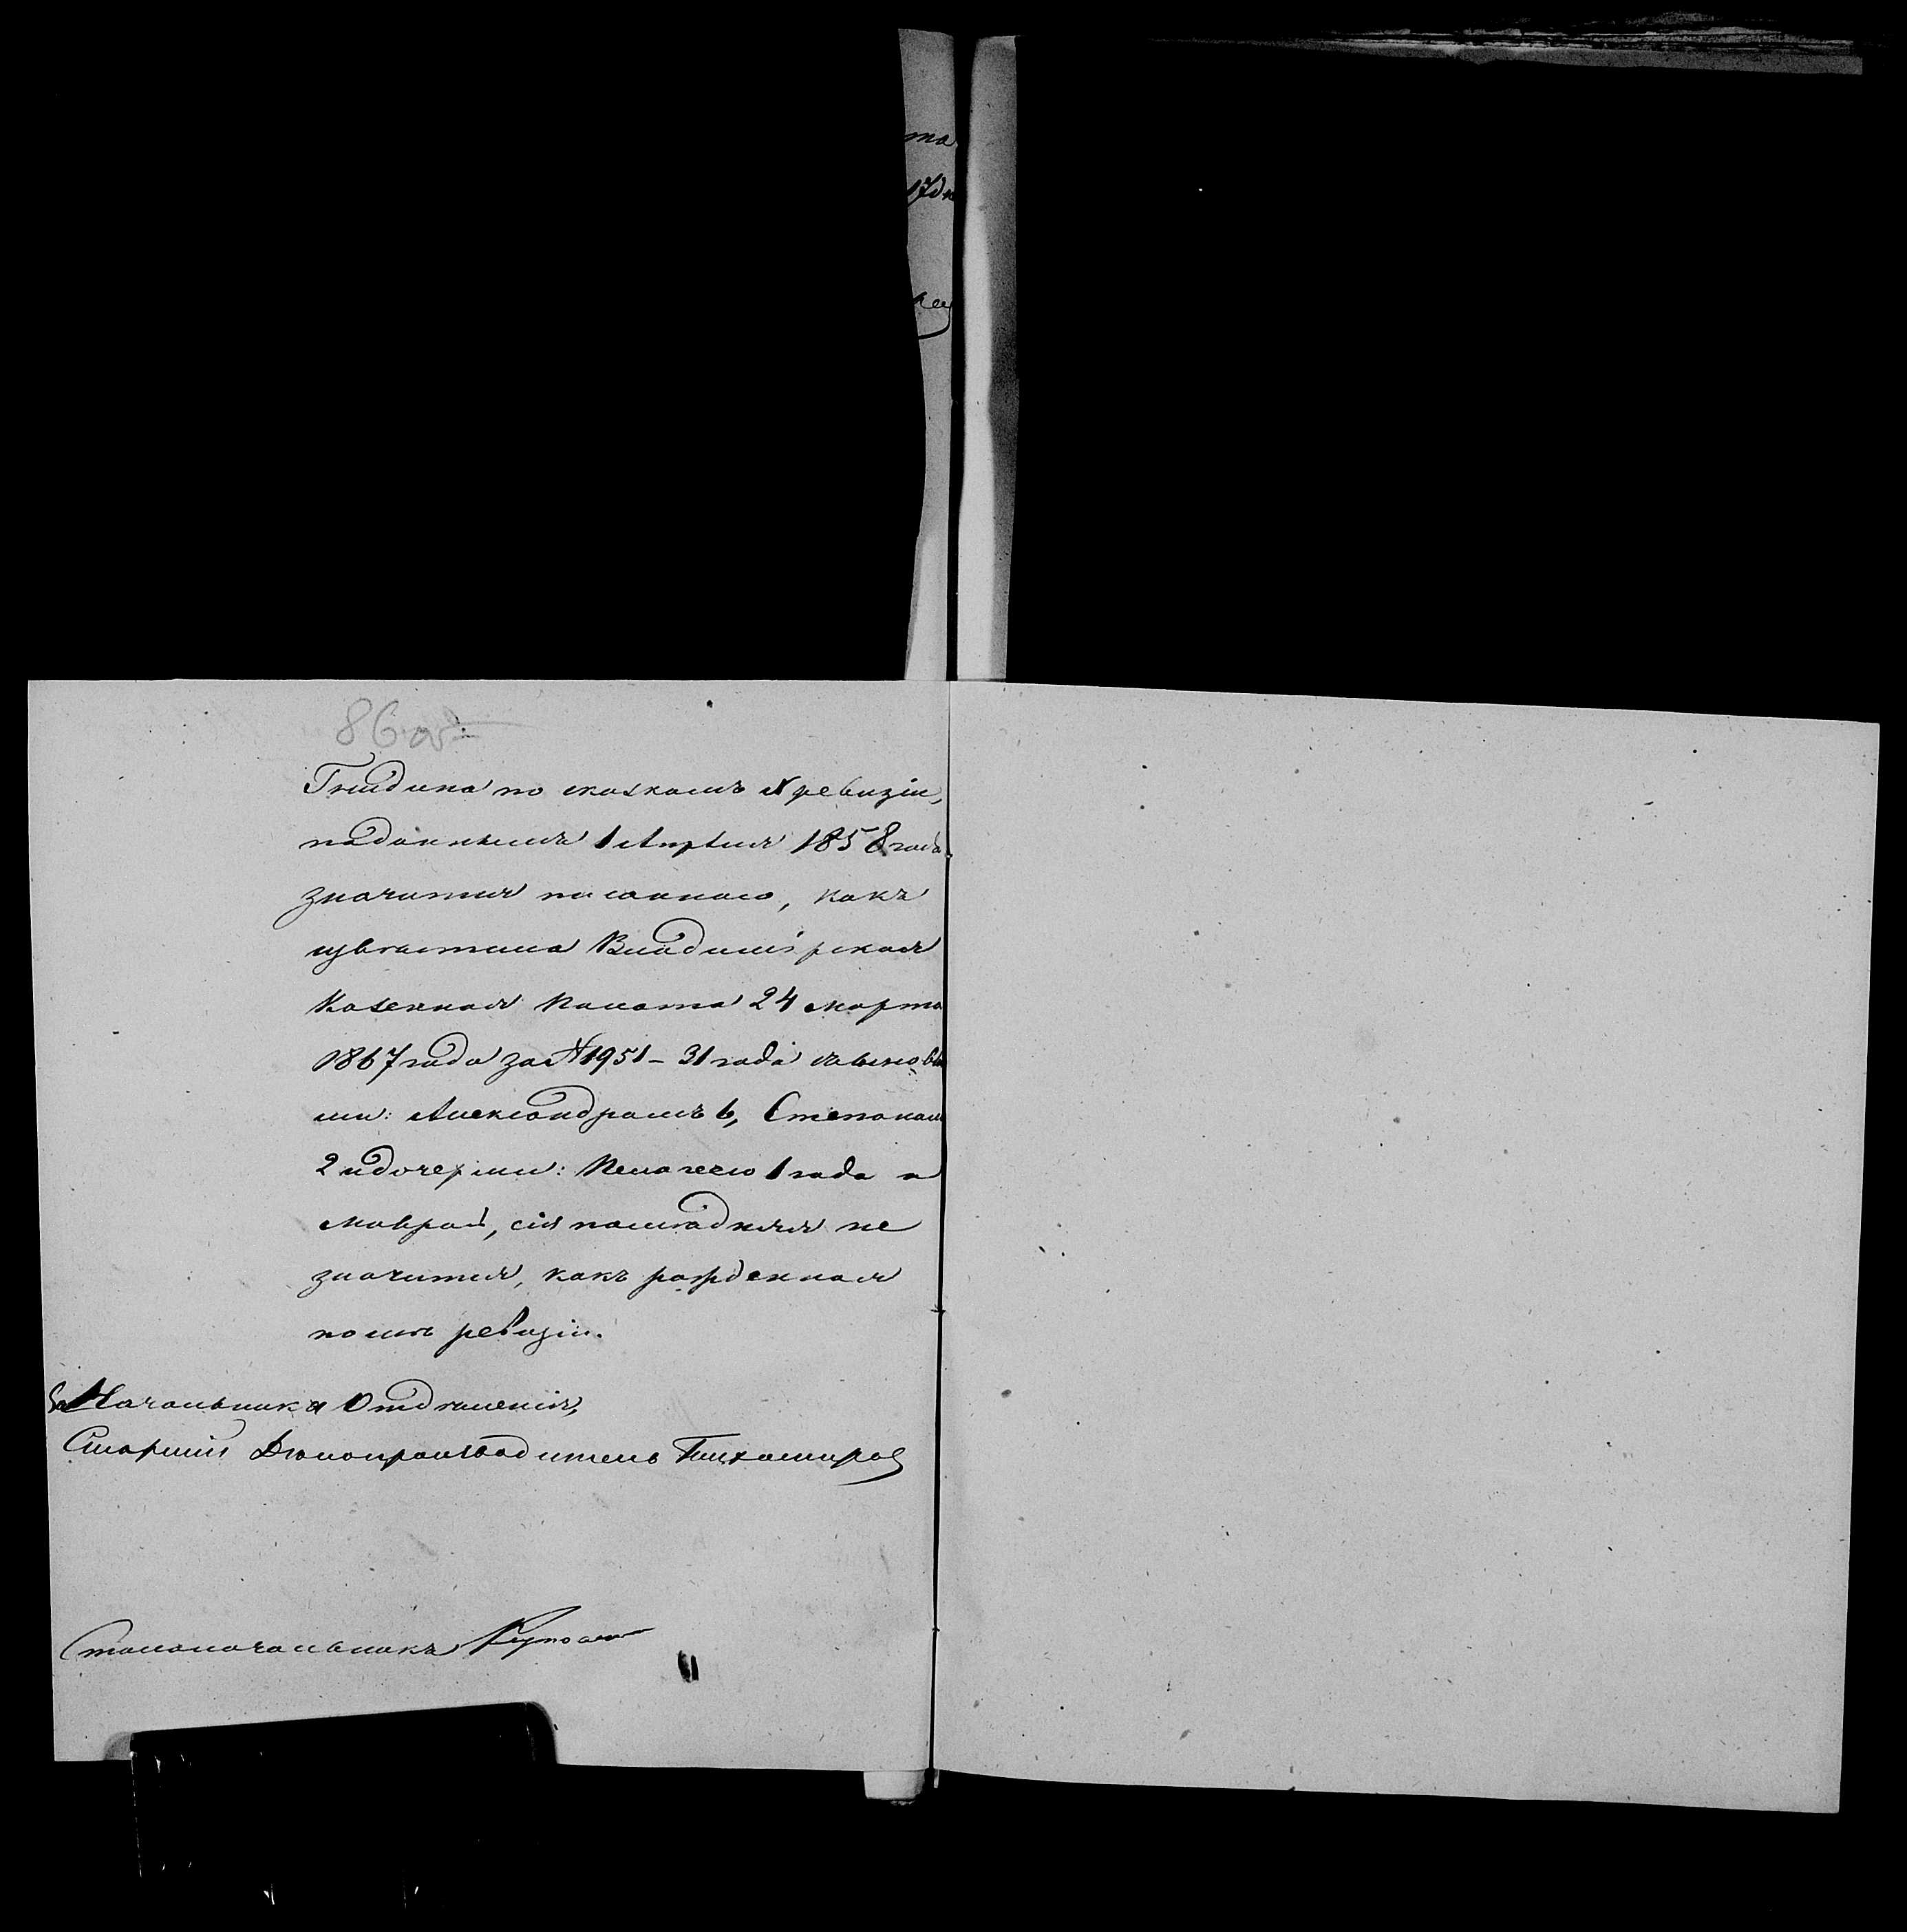 та
17дн
86 об
Гнидина по сказкамъ X ревизіи,
поданнымъ 1 Апрѣля 1858 года
значится писанною, какъ
извѣстила Владимірская
Казенная Палата 24 Марта
1867 года за №1951 - 31 года съ сыновь
ями: Александромъ 6, Степаном
2 и дочерьми: Пелагеею 1 года и
Маврой, сія послѣдняя не
значится, какъ рожденная
послѣ ревизіи.
За Начальника Отдѣленія,
Старшій Дѣлопроизводитель Тихомиров
Столоначальникъ